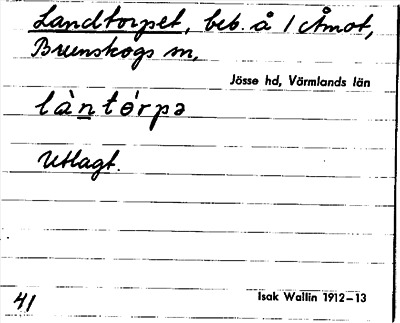 Landtorpet, beb. å 1 Åmot,
Brunskogs sn,
Jösse hd, Värmlands län
làntórpə
Utlagt.
41
Isak Wallin 1912–13